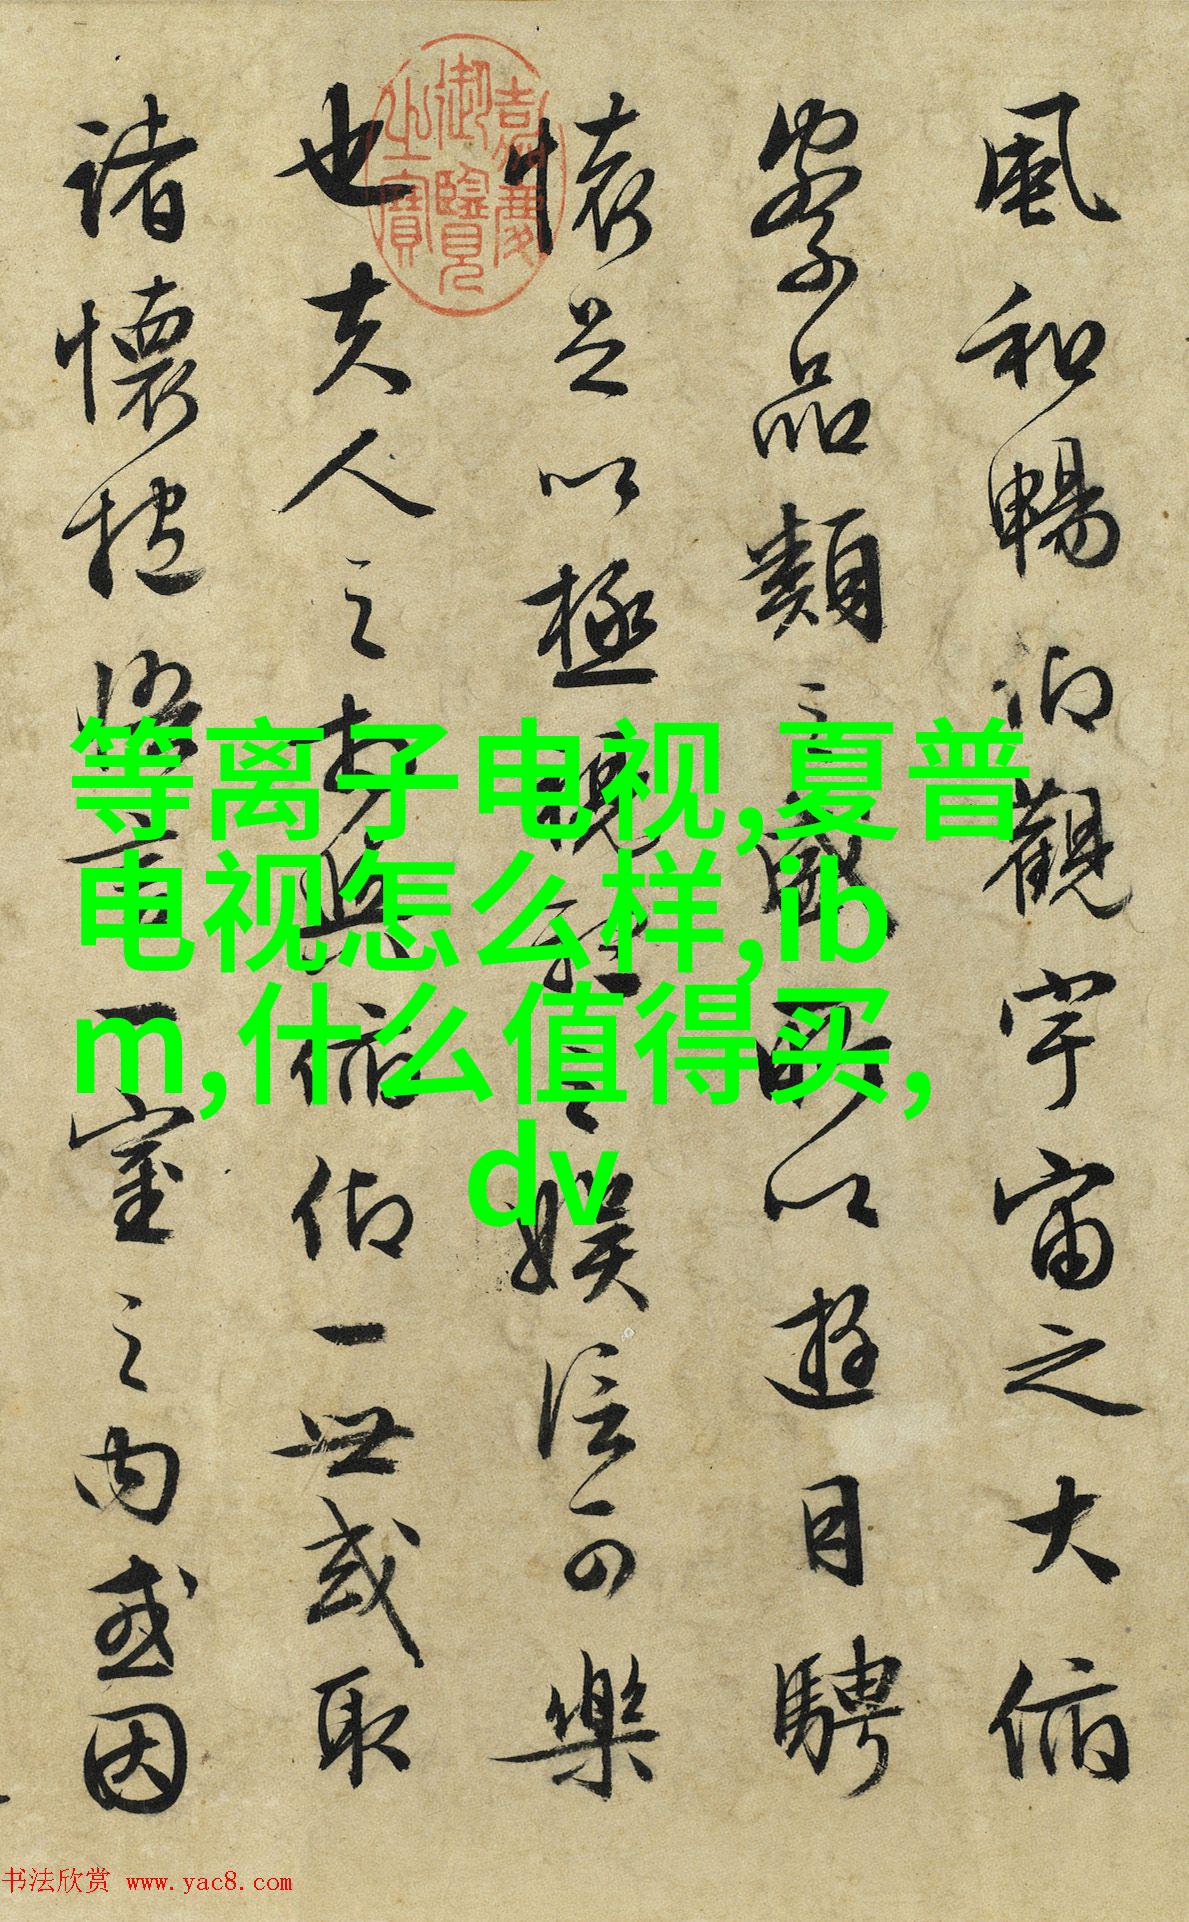 風和暢仰觀宇宙之大俯
察品類之盛所以遊目騁
懷足以極視聽之娛信可樂
也夫人之相與俯仰一世或取
諸懷抱悟言一室之內或因
嘉慶御覽之寶
等离子电视,夏普
电视怎么样,ib
m,什么值得买,
dv
书法欣赏 www.yac8.com